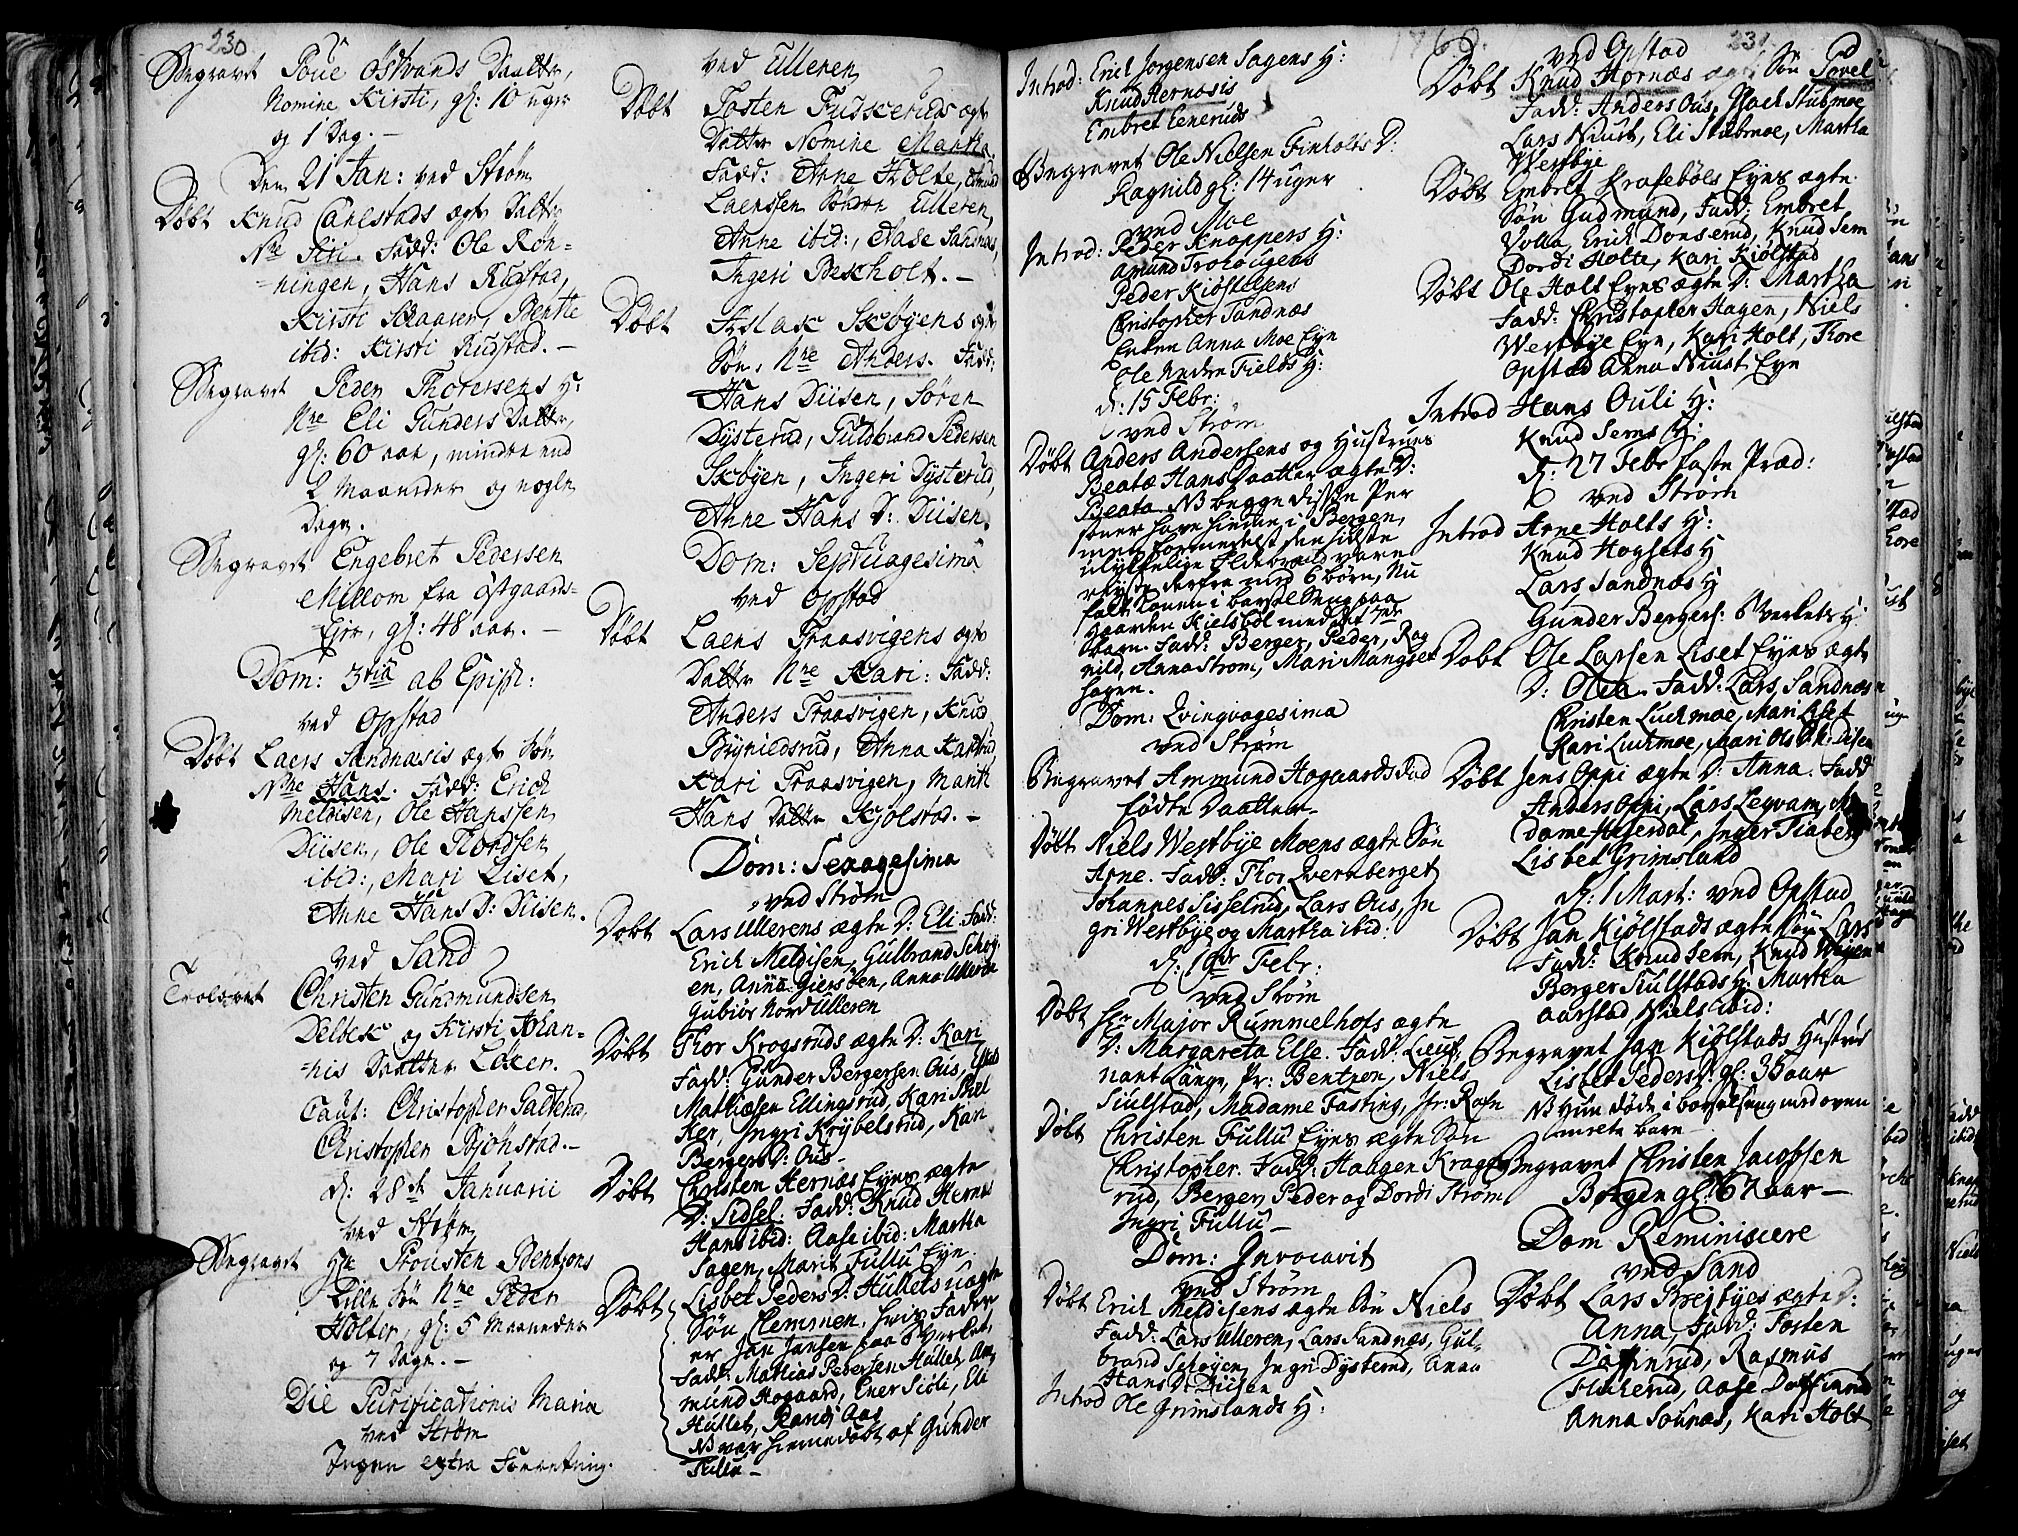 230
Begravet Poue Østvands Daatter,
Nomine Kirsti, gl: 10 uger
og 1 Dag. —
Den 21 Jan: ved Strøm
Døbt Knud Carlstads ægte Datter
Nne Siri. Fadd: Ole Røn-
ningen, Hans Rustad,
Kirsti Skaaren, Benthe
ibid: Kirsti Rustad. —
Begravet Peder Thoresens H:
Nne Eli Gunders Datter,
gl: 60 aar, mindre end
2 Maaneder og nogle
Dage.
Begravet Engebret Pedersen
Millom fra Østgaards-
Ejer, gl: 48 aar. —
Dom: 3tia ab Epiph:
ved Opstad
Døbt Laers Sandnæsis ægte Søn
Nne Hans. Fadd: Erich
Meldisen, Ole Hanssen
Diisen, Ole Thordsen
ibid:, Mari Liset,
Anne Hans D: Diisen.
ved Sand
Trolovet Christen Gudmundsen
Delbek og Kirsti Johan-
nis Daatter Løken.
Caut: Christopher Galterud,
Christopher Skjønstad. —
d: 28de Januarii
ved Strøm
Begravet Hr. Trousten Bentzons
Lille Søn Nne Peder
Holter, gl: 5 Maaneder
og 7 Dage. —
Die Purificationis Mariæ
ved Strøm
Ingen extra Forretning.
ved Ulleren
Døbt Tosten Fuskeruds ægte
Datter Nomine Martha.
Fadd: Anne Holte,
Laerssen Søndre Ulleren,
Anne ibid:, Aase Sandnæs,
Ingeri Beckholt. —
Døbt Aslak Skøyens ægte
Søn, Nne Anders. Fadd:
Hans Diisen, Søren
Dysterud, Guldbrand Pedersen
Skøyen, Ingeri Dysterud,
Anne Hans D: Diisen.
Dom: Septuagesima
ved Opstad
Døbt Laers Traasvigens ægte
Datter Nne Kari: Fadd:
Anders Traasvigen, Knud
Brynildsrud, Anna Karlstad
Kari Traasvigen, Marthe
Hans Datter Kjølstad. —
Dom: Sexagesima
ved Strøm
Døbt Lars Ullerens ægte D: Eli. Fadd:
Erich Meldisen, Gulbrand Schøy-
en, Anna Giersøen, Anna Ulleren
Gubiør Nord Ulleren
Døbt Thor Krogsruds ægte D: Kari
Fadd: Gunder Bergersen Ous,
Mathiesen Ellingsrud, Kari
Ker, Ingri Krybelsrud, Kari
Bergers D: Ous —
Døbt Christen Hernæs Eyes ægte
D: Sidsel. Fadd: Knud Hernæs
Hans ibid: Aase ibid: Martha
Sagen, Marit Fullu Eye.
Døbt Lisbet Peders D: Hullets uægte
Søn Clemmen, hvis Fader
er Jan Jansen paa Værket,
Fadd: Mathias Pedersen Hullet, Am-
mund Hogaard, Ener Siøli, Eli
Hullet, Randi Aas
NB var hiemedøbt af Gunder
Fullu —
1760.
Introd: Erich Jorgensen Sagens H:
Knud Hernæsis
Embret Eneruds
Begravet Ole Nielsen Finholts D:
Ragnild gl: 14 uger
ved Moe
Introd: Peder Knappers H:
Amund Trohougens
Peder Kiøstelsens
Christopher Sandnæs
Enken Anna Moe Eye
Ole Nedre Fields H:
d: 15 Febr:
ved Strøm
Døbt Anders Andersens og Hustrues
Beatæ Hans Daatter ægte D:
Beata. NB begge disse Per
soner have hiemme i Bergen,
men formedelst den sidste
ulykkelige Ildebrand vare
reyste derfra med 6 børn, Nu
faldt Konen i barsel Seng paa
gaarden Kielsbøl med det 7de
Barn. Fadd: Berger, Peder, Rag
nild, Anna Strøm, Mari Mangset
hagen.
Dom: Qvinqvagesima
ved Strøm
Begravet Ammund Hogaards død
fødte Daatter.
Døbt Niels Westbye Moens ægte Søn
Arne. Fadd: Thor Qvernberget
Johannes Sisselrud, Lars Ous, In
gri Westbye og Martha ibid:
d: 19de Febr:
ved Strøm
Døbt Hr Major Rummelhofs ægte
D: Margareta Else. Fadd: Lieut-
nant Lange, Pr: Bentzen, Niels
Siulstad, Madame Fasting, Jfr: Rafn
Døbt Christen Fullu Eyes ægte Søn
Christopher. Fadd: Haagen Krogs-
rud, Berger, Peder og Dordi Strøm
Ingri Fullu —
Dom: Invocavit
ved Strøm
Døbt Erich Meldisens ægte Søn Niels
Fadd: Lars Ulleren, Lars Sandnæs, Gul-
brand Schøyen, Ingri Dysterud, Anna
Hans D: Diisen
Introd Ole Grimslands H:
231
ved Opstad
Døbt Knud Hornæs ægte Søn Povel
Fadd: Anders Ous, Iisach Stubmoe
Lars Niust, Eli Stubmoe, Martha
Westbye
Døbt Embret Krasebøls Eyes ægte
Søn Gudmund, Fadd: Embret
Volla, Erich Donserud, Knud Sem
Dordi Holte, Kari Kiølstad
Døbt Ole Holt Eyes ægte D: Martha
Fadd: Christopher Hagen, Niels
Westbye Eye, Kari Holt, Thore
Opstad Anna Niust Eye
Introd Hans Ouli H:
Knud Sems H:
d: 27 Febr faste Præd:
ved Strøm
Introd Arne Holts H:
Knud Hogsets H
Lars Sandnæs H
Gunder Bergers: Sverkets H:
Døbt Ole Larsen Liset Eyes ægte
D: Olea. Fadd: Lars Sandnæs
Christen Luchmoe, Mari Liset
Kari Luchmoe, Mari Ols D: Diisen
Døbt Jens Oppi ægte D: Anna. Fadd
Anders Oppi, Lars Legvam, Ma
dame Haserdal, Inger
Lisbet Grimsland
d: 1 Mart: ved Opstad
Døbt Jan Kiølstads ægte Søn Lars
Fadd: Knud Sem, Knud Weyen
Berger Siulstads H: Martha
Aarstad Niels ibid:
Begravet Jan Kiølstads Hustrue
Lisbet Peders D: gl: 36 aar
NB Hun døde i barselseng med oven
anrete barn
Begravet Christen Jacobsen
Borgen gl: 67 aar —
Dom Reminiscere
ved Sand
Døbt Lars Brejbyes ægte D:
Anna, Fadd: Tosten
Daffinrud, Rasmus
Fluckerud, Aase Daffinrud
Anna Sounæs, Kari Holt